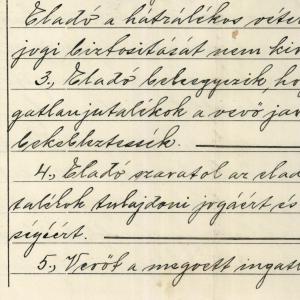 Eladó a hátrálékos vétel
jogi biztositását nem kiv
3., Eladó beleegyezik, ho
gatlanjutalékok a vevő jav
bekebleztessék.
4., Eladó szavatol az elad
talékok tulajdoni jogáért és
ségéért.
5., Vevőt a megvett ingatl